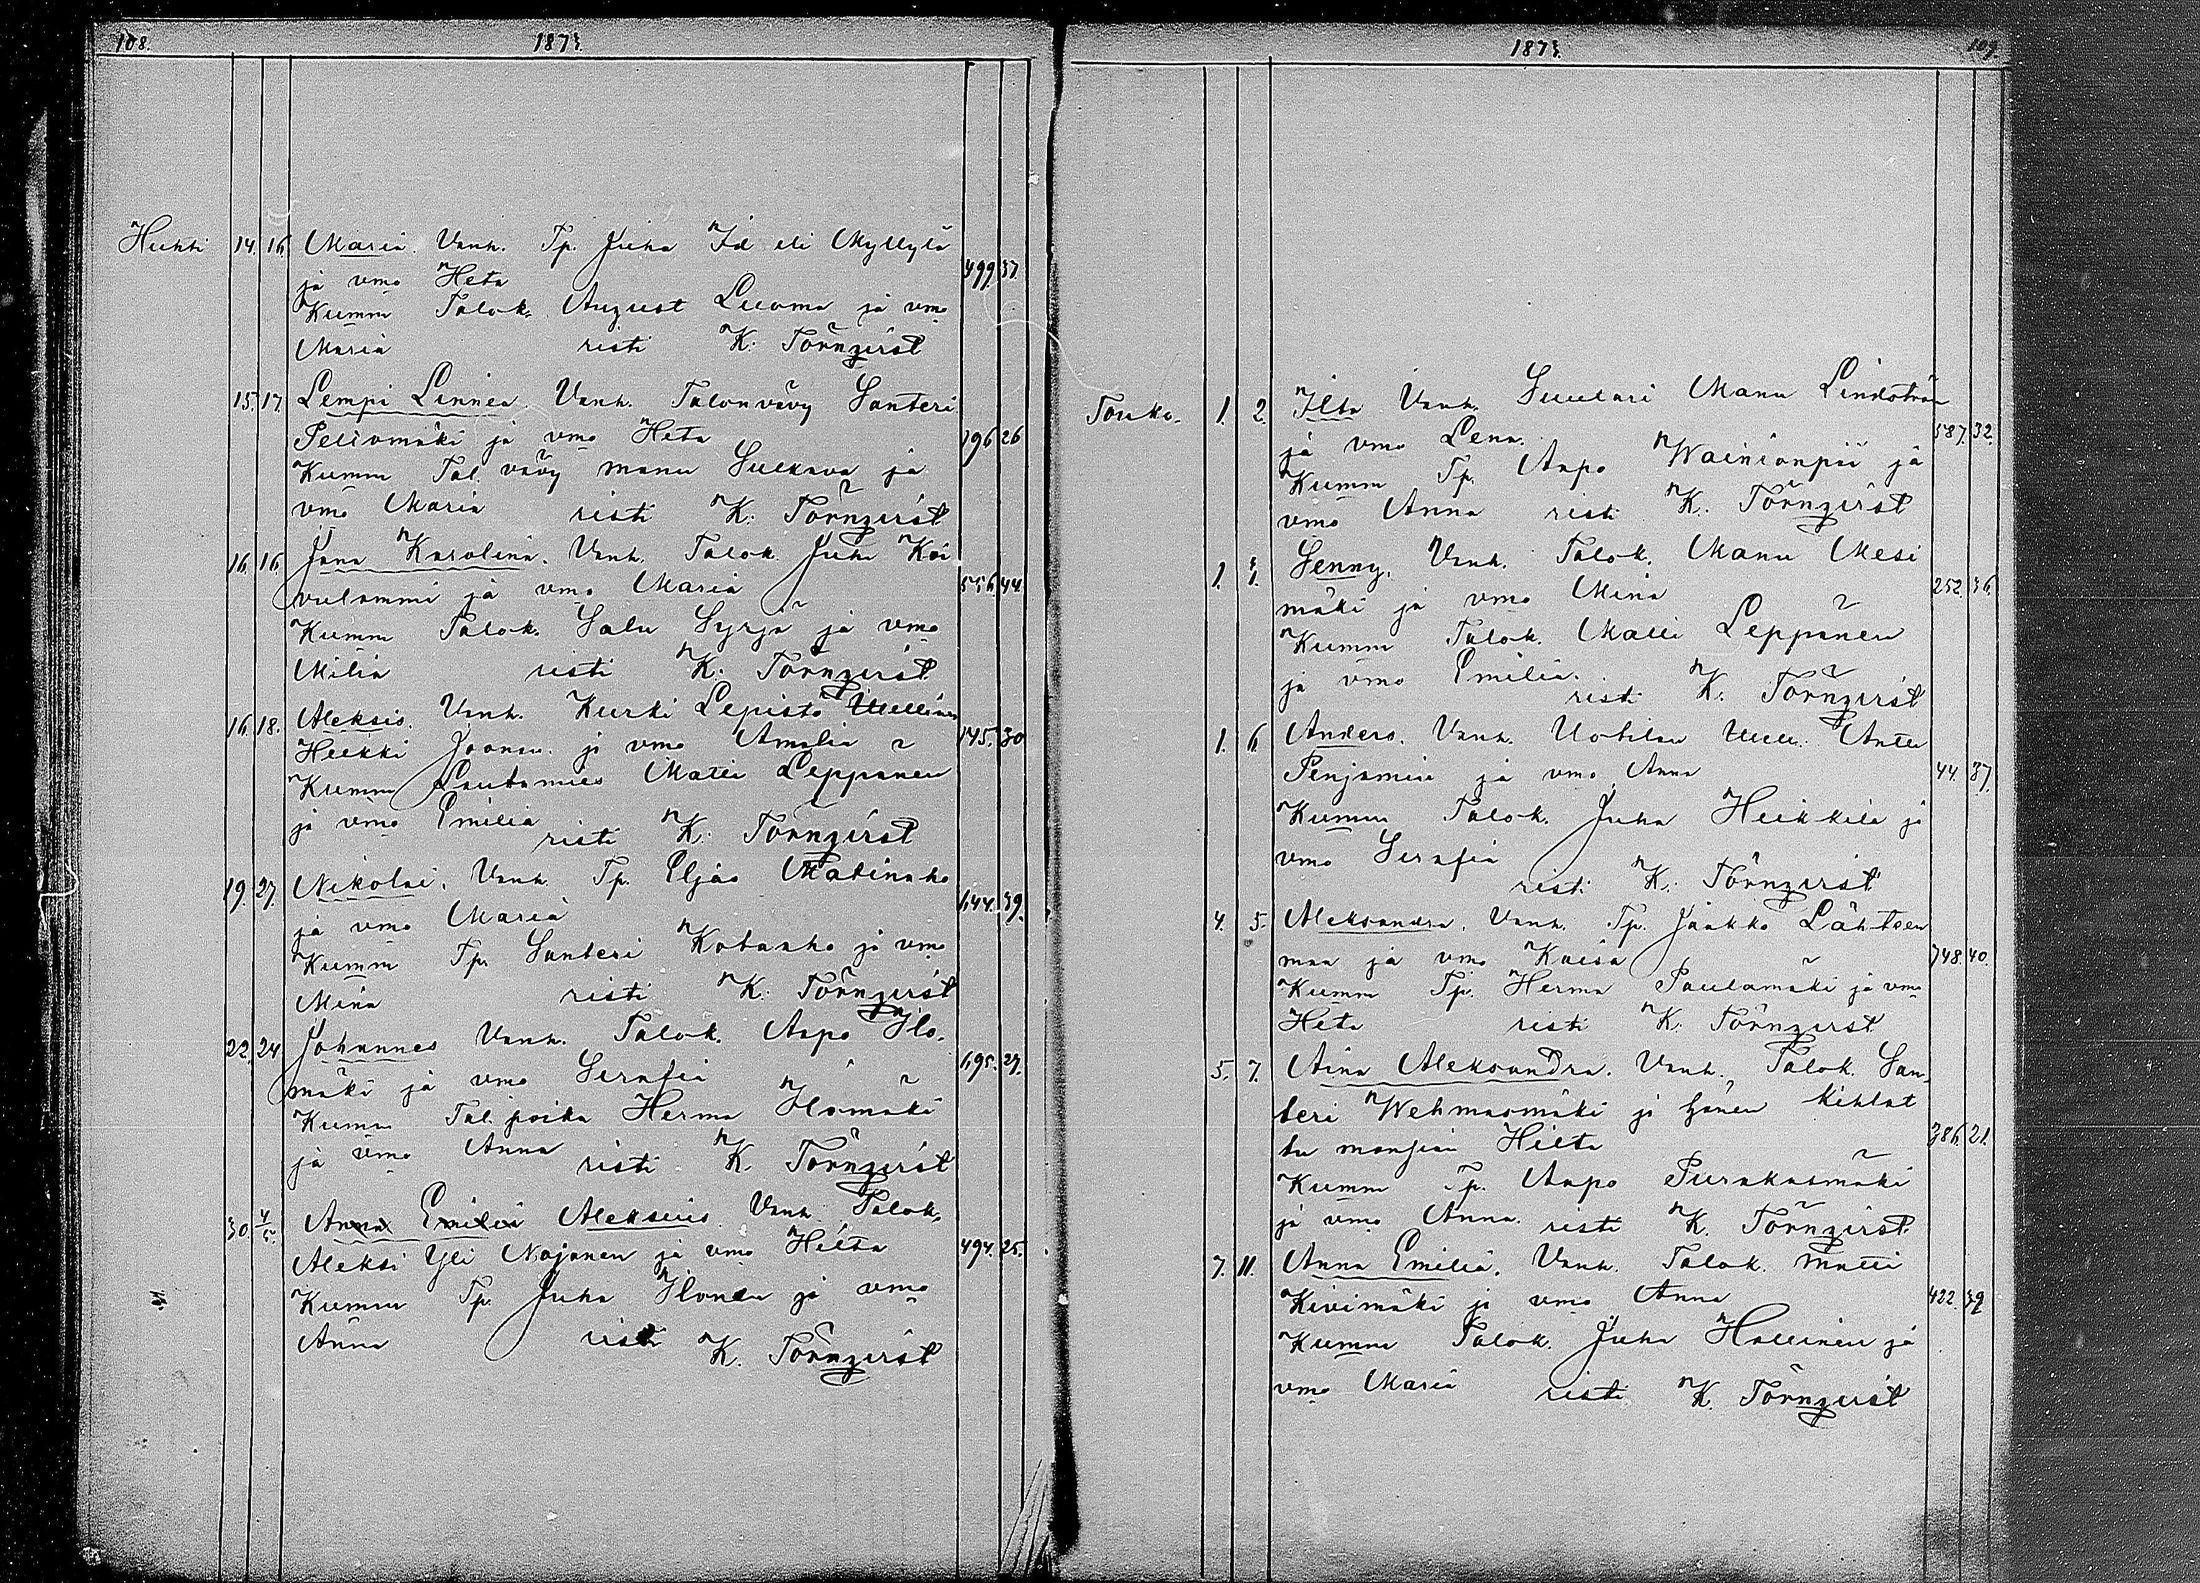 108.
1873.
Huhti 14. 16. Maria. Vanh. Tp. Juha Id eli Myllylä
ja vmo Heta 499. 37.
Kumm Talok. August Luoma ja vmo
Maria risti K. Törnqvist
15. 17. Lempi Linnea. Vanh. Talonvävy Santeri
ja vmo Heta 196 26
Kumm Tal. vävy manu Sulkava ja
vmo Maria risti K. Törnqvist
16. 16. Karolina. Vanh. Talok. Juha Koi
vulammi ja vmo Maria 556. 44.
Kumm Talok. Salu Syrjä ja vmo
Milia risti K. Törnqvist
16. 18. Aleksis. Vanh. Kurki Lepistö
Heikki Joonas ja vmo Amalia 145. 30
Kumm Lautamies Matti Leppänen
ja vmo Emilia
risti K. Törnqvist
19. 27. Nikolai. Vanh. Tp. Eljas Matinaho
ja vmo Maria 644. 39.
Kumm Tp. Santeri Kotaaho ja vmo
Mina risti K. Törnqvist
22. 24 Johannes Vanh. Talok. Aapo Ilo-
mäki ja vmo Serafia 695. 27.
Kumm Tal. poika Herma Ilomäki
ja vmo Anna risti K. Törnqvist
30. 4/5 Anna Emilia Aleksius. Vanh. Talok.
Aleksi Yli Nojonen ja vmo Hilta 494. 25.
Kumm Tp. Juha Ilonen ja vmo
Anna risti K. Törnqvist
1873.
109.
Touko. 1. 2. Ilta Vanh. Suutari Manu Lindström
ja vmo Lena. 587. 32.
Kumm Tp. Aapo Wainionpää ja
vmo Anna risti K. Törnqvist
1. Senny. Vanh. Talok. Manu Mesi
mäki ja vmo Mina 252. 36.
Kumm Talok. Matti Leppänen
ja vmo Emilia.
risti K. Törnqvist
1. 6. Anders. Vanh. Uotilan Antti
Penjamin ja vmo Anna 44. 37.
Kumm Talok. Juha Heikkilä ja
vmo Serafia
risti K. Törnqvist
4. 5. Aleksandra. Vanh. Tp. Jaakko Lähteen
maa ja vmo Kaisa 748 40.
Kumm Tp. Herma Paulamäki ja vmo
Heta risti K. Törnqvist
5. 7. Aina Aleksandra. Vanh. Talok. San-
teri Wehmasmäki ja hänen kihlat
tu morsian Hilta 386. 21.
Kumm Tp. Aapo Purakasmäki
ja vmo Anna. risti K. Törnqvist.
7. 11. Anna Emilia. Vanh. Talok. Matti
Kivimäki ja vmo Anna 422. 39
Kumm Talok. Juha Hallinen ja
vmo Maria risti K. Törnqvist